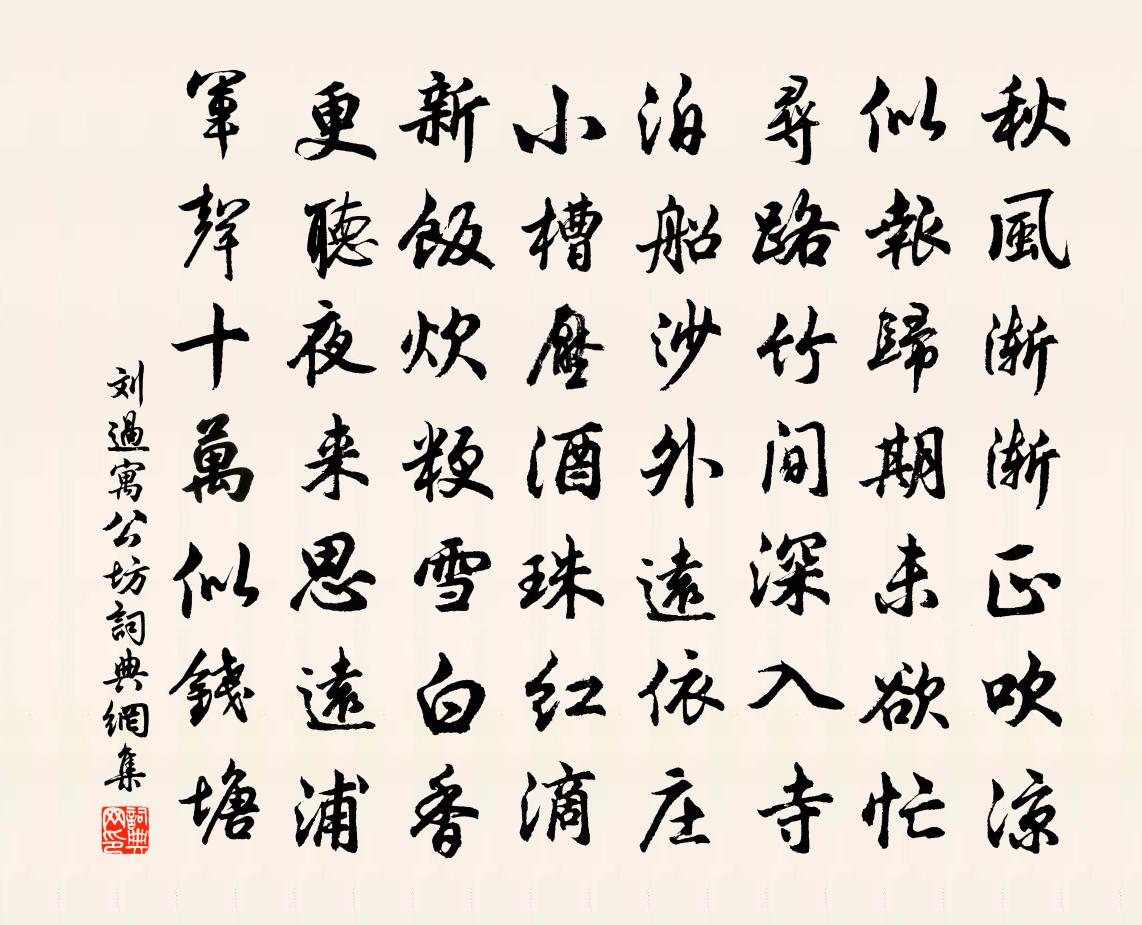 秋風渐渐正吹凉
似報歸期未欲忙
尋路竹间深入寺
泊船沙外遠依庄
小槽壓酒珠红滴
新飯炊粳雪白香
更聽夜来思遠浦
軍聲十萬似錢塘
刘過寓公坊詞典網集
詞典网印